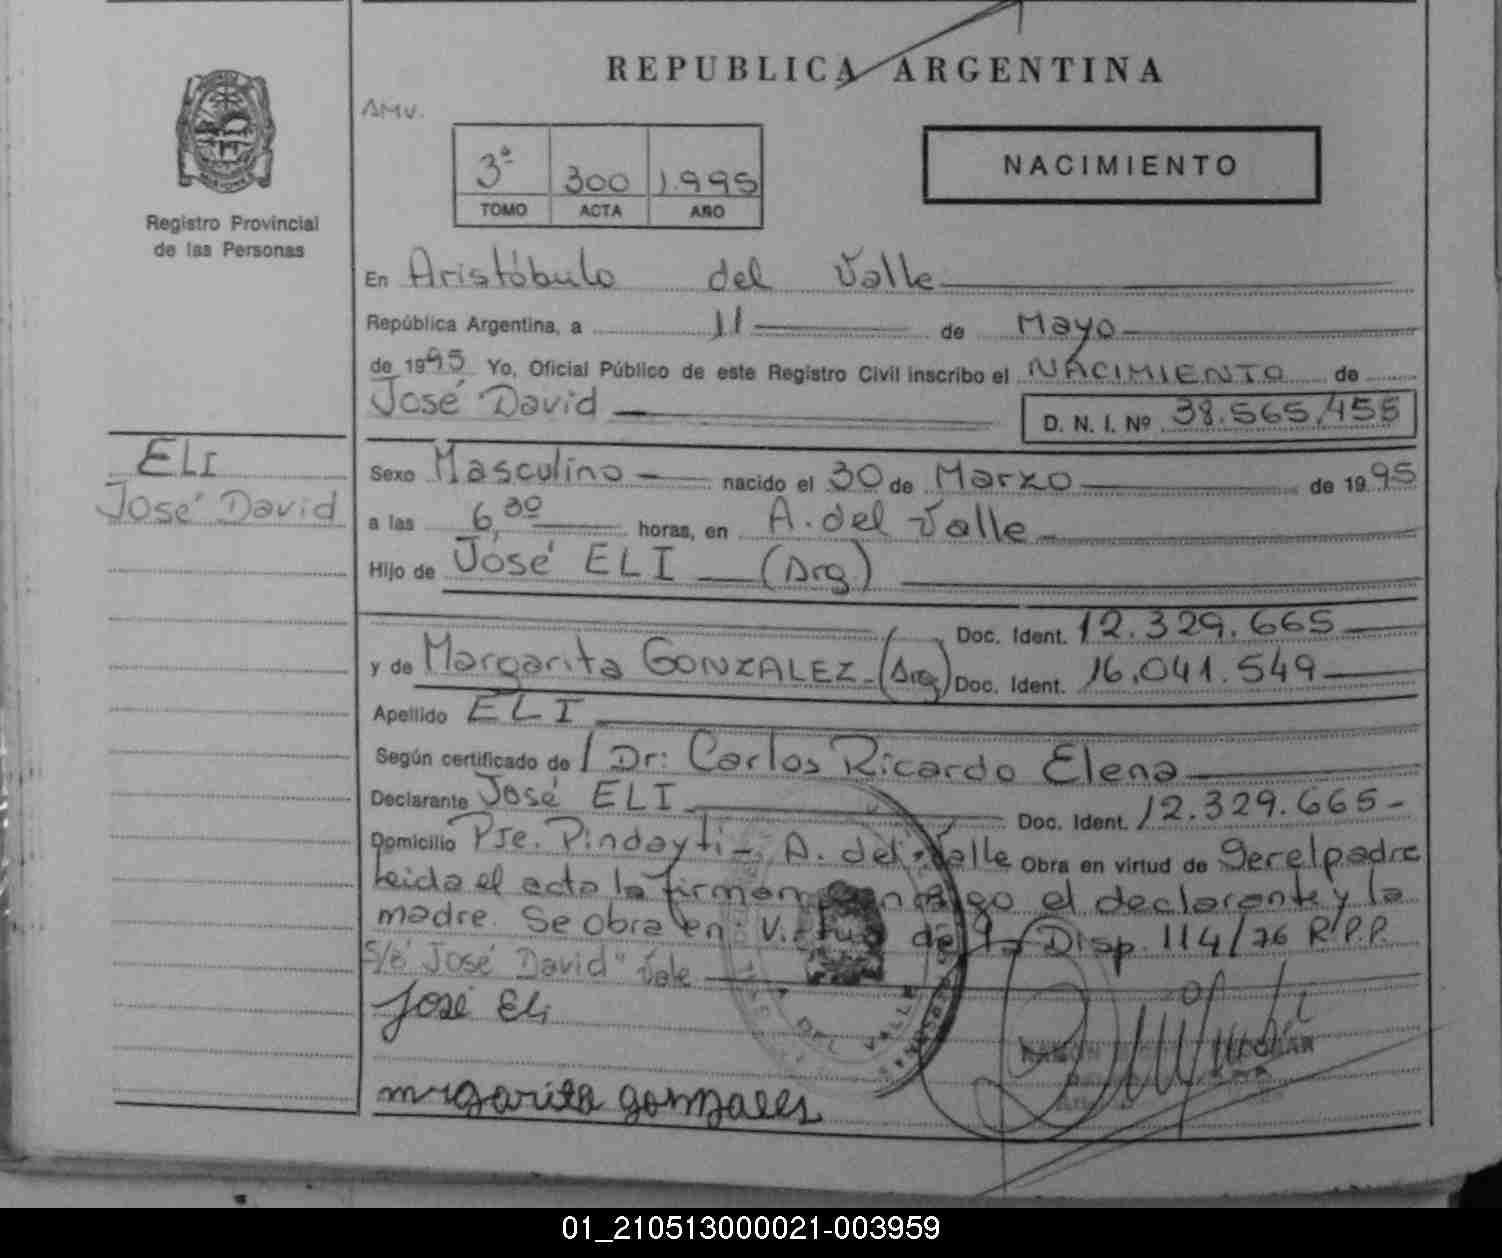 REPUBLICA ARGENTINA
AMV.
Registro Provincial
de las Personas
3ª 300 1.995
TOMO ACTA AÑO
NACIMIENTO
En Aristóbulo del Valle
República Argentina, a 11 de Mayo
de 1995 Yo, Oficial Público de este Registro Civil inscribo el NACIMIENTO de
José David D. N. I. Nº 38.565.455
ELI
José David
Sexo Masculino nacido el 30 de Marzo de 1995
a las 6,30 horas, en A. del Valle
Hijo de José ELI (Arg.)
Doc. Ident. 12.329.665
y de Margarita GONZALEZ (Arg) Doc. Ident. 16.041.549
Apellido ELI
Según certificado de Dr: Carlos Ricardo Elena
Declarante José ELI Doc. Ident. 12.329.665-
Domicilio Pje. Pindayti - A. del Valle Obra en virtud de Ser el padre
Leida el acta la firman conmigo el declarante y la
madre. Se obra en Virtud de Disp. 114/76 R.P.P.
S/é "José David" Vale
José Eli
DEL VALLE
RAMON
mrgarita gonzales
01_210513000021-003959